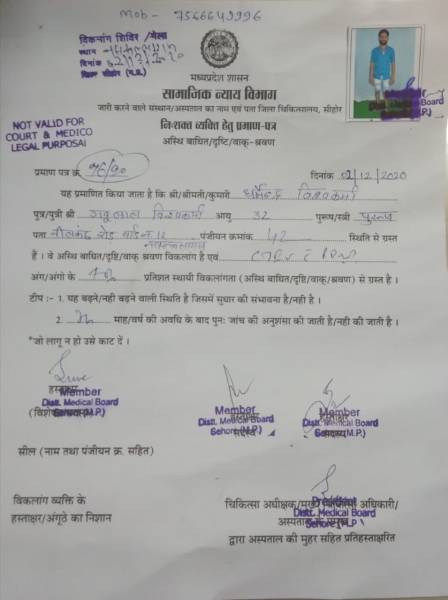 Mob - 7566649996
विकलांग शिविर /मेला
स्थान
दिनांक 02/12/2020
जिला सीहोर (म.प्र.)
मध्यप्रदेश शासन
सामाजिक न्याय विभाग
जारी करने वाले संस्थान/अस्पताल का नाम एवं पता जिला चिकित्सालय, सीहोर
NOT VALID FOR
COURT & MEDICO
LEGAL PURPOSAI
निःशक्त व्यक्ति हेतु प्रमाण-पत्र
अस्थि बाधित/दृष्टि/वाक्-श्रवण
प्रमाण पत्र क्र. दिनांक 02/12/2020
यह प्रमाणित किया जाता है कि श्री/श्रीमती/कुमारी धर्मेन्द्र विश्वकर्मा
पुत्र/पुत्री श्री बाबुलाल विश्वकर्मा आयु 32 पुरूष/स्त्री पुरूष
पता रोड वार्ड न 12 पंजीयन क्रमांक 42 स्थिति से ग्रस्त
हैं । वे अस्थि बाधित/दृष्टि/वाक्/श्रवण विकलांग है एवं
अंग/अंगो के प्रतिशत स्थायी विकलांगता (अस्थि बाधित/दृष्टि/वाक्/श्रवण) से ग्रस्त है ।
टीप :- 1. यह बढ़ने/नही बढ़ने वाली स्थिति है जिसमें सुधार की संभावना है/नही है ।
2. माह/वर्ष की अवधि के बाद पुनः जांच की अनुशंसा की जाती है/नही की जाती है ।
*जो लागू न हो उसे काट दें ।
हस्ताक्षर हस्ताक्षर हस्ताक्षर
Member Member Member
Distt. Medical Board Distt. Medical Board Distt. Medical Board
Sehore (M.P.) Sehore (M.P.) Sehore (M.P.)
सदस्य सदस्य
सील (नाम तथा पंजीयन क्र. सहित)
विकलांग व्यक्ति के
हस्ताक्षर/अंगूठे का निशान
चिकित्सा अधीक्षक/मुख्य चिकित्सा अधिकारी/
Distt. Medical Board
अस्पताल के प्रमुख
Sehore (M.P.)
द्वारा अस्पताल की मुहर सहित प्रतिहस्ताक्षरित